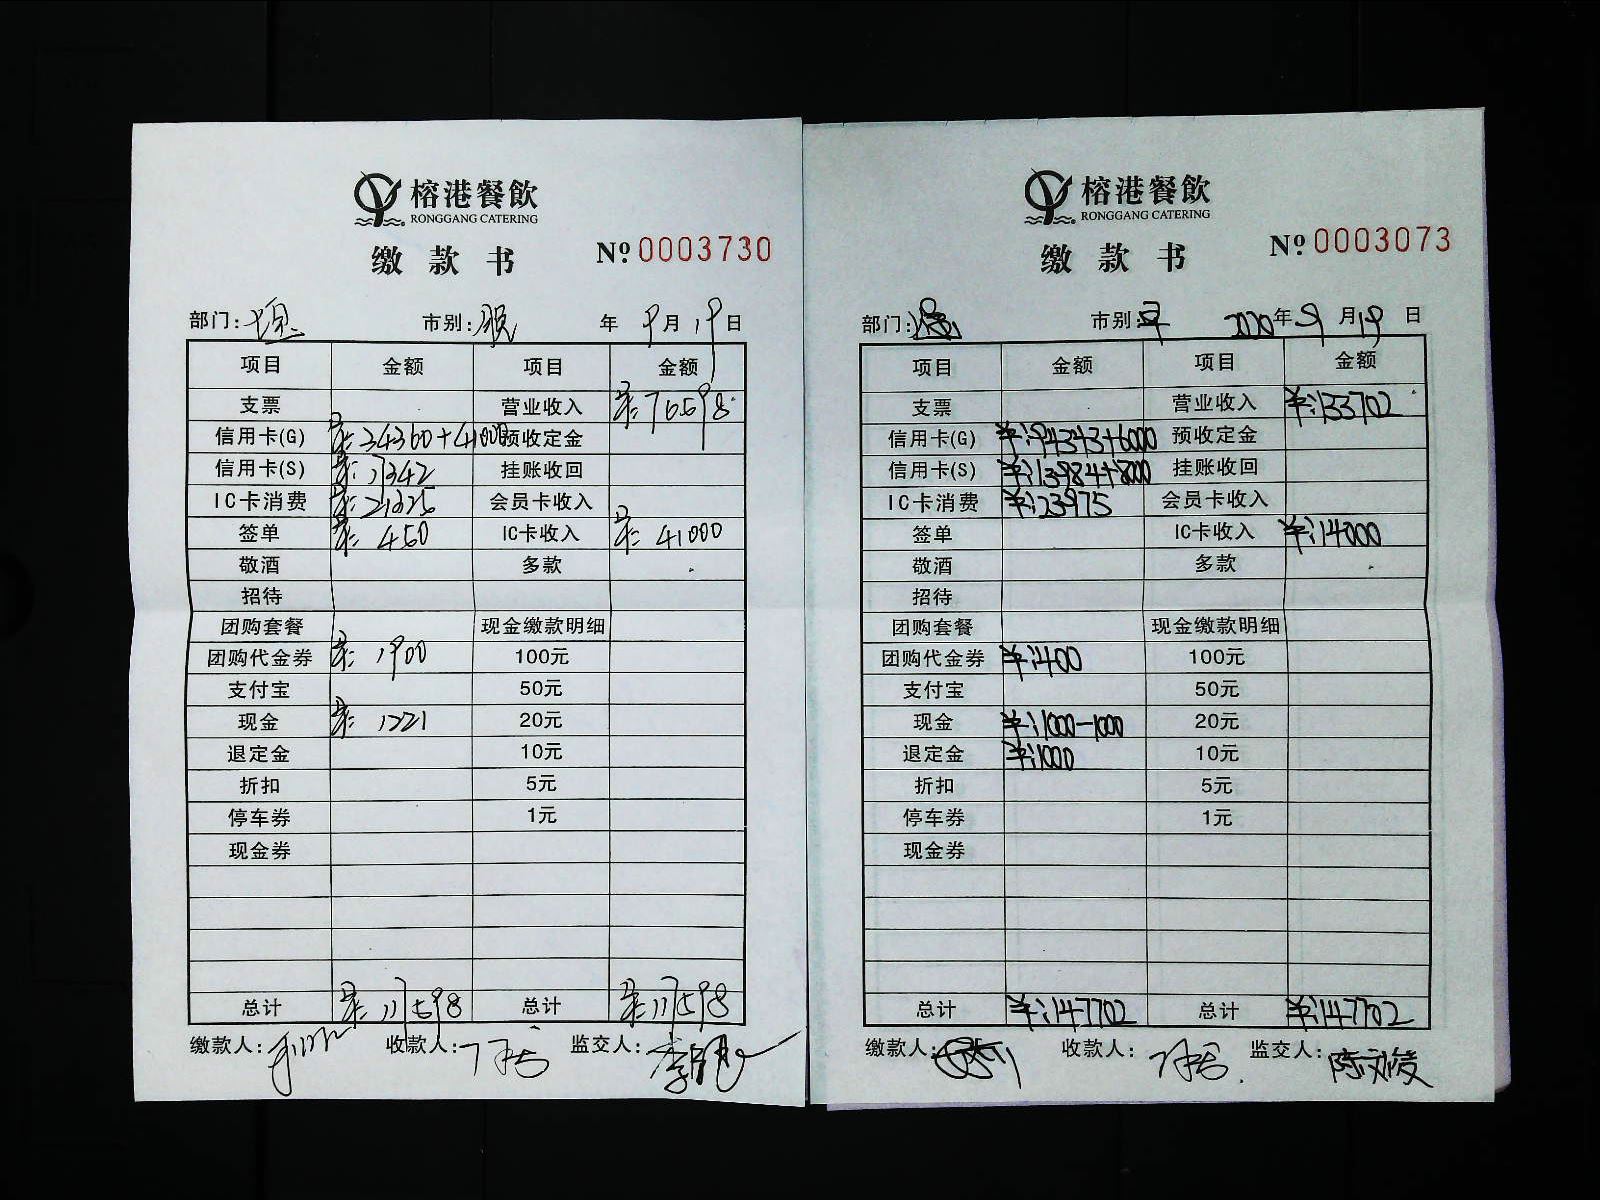 榕港餐飲
RONGGANG CATERING
缴款书 Nº 0003730
部门: 市别: 年 9月19日
项目 金额 项目 金额
支票 营业收入 ¥:76598
信用卡(G) ¥:34360+41000 预收定金
信用卡(S) ¥:17342 挂账收回
IC卡消费 ¥:21325 会员卡收入
签单 ¥:450 IC卡收入 ¥:41000
敬酒 多款
招待
团购套餐 现金缴款明细
团购代金券 ¥:1900 100元
支付宝 50元
现金 ¥:1221 20元
退定金 10元
折扣 5元
停车券 1元
现金券
总计 ¥:117598 总计 ¥:117598
缴款人: 收款人: 监交人:
榕港餐飲
RONGGANG CATERING
缴款书 Nº 0003073
部门: 市别:早 2020年9月19日
项目 金额 项目 金额
支票 营业收入 ¥:133702
信用卡(G) ¥:94343+6000 预收定金
信用卡(S) ¥:13984+8000 挂账收回
IC卡消费 ¥:23975 会员卡收入
签单 IC卡收入 ¥:14000
敬酒 多款
招待
团购套餐 现金缴款明细
团购代金券 ¥:400 100元
支付宝 50元
现金 ¥:1000-1000 20元
退定金 ¥:1000 10元
折扣 5元
停车券 1元
现金券
总计 ¥:147702 总计 ¥:147702
缴款人: 收款人: 监交人: